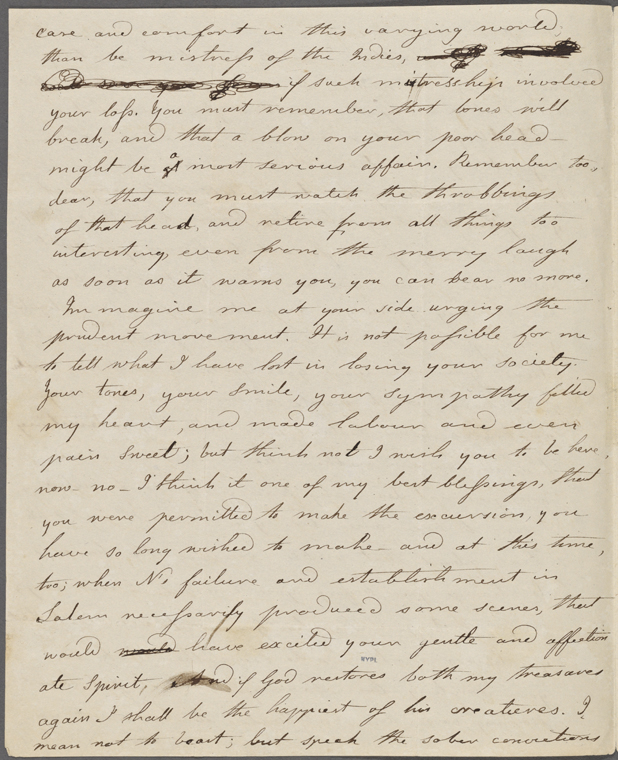 care and comfort in this varying world,
than be mistress of the Indies,
if such mistresship involved
your loss. You must remember, that bones will
break, and that a blow on your poor head
might be a most serious affair. Remember too,
dear, that you must watch the throbbings
of that head, and retire from all things too
interesting, even from the merry laugh
as soon as it warns you, you can bear no more.
Immagine me at your side urging the
prudent movement. It is not possible for me
to tell what I have lost in losing your society.
Your tones, your smile, your sympathy filled
my heart, and made labour and even
pain sweet; but think not I wish you to be here,
now - no - I think it one of my best blessings, that
you were permitted to make the excursion, you
have so long wished to make - and at this time,
too; when N's failure and establishment in
Salem necessarily produced some scenes, that
would would have excited your gentle and affection
ate spirit, And if God restores both my treasures
again I shall be the happiest of his creatures. I
mean not to boast; but speak the sober convictions